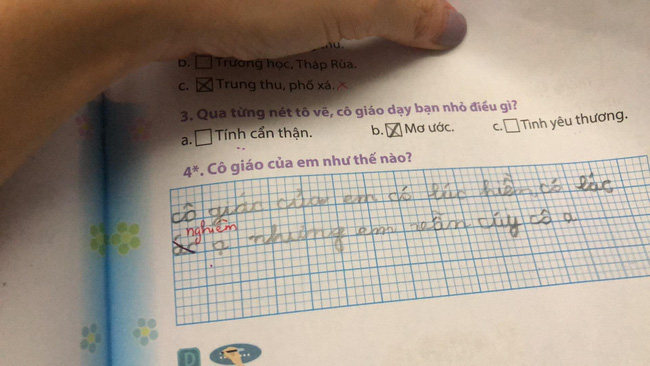 b. Trường học, Tháp Rùa.
c. Trung thu, phố xá.
3. Qua từng nét tô vẽ, cô giáo dạy bạn nhỏ điều gì?
a. Tính cẩn thận. b. Mơ ước. c. Tình yêu thương.
4*. Cô giáo của em như thế nào?
cô giáo của em có lúc hiền có lúc
nghiêm
ác ạ nhưng em vẫn cúy cô ạ